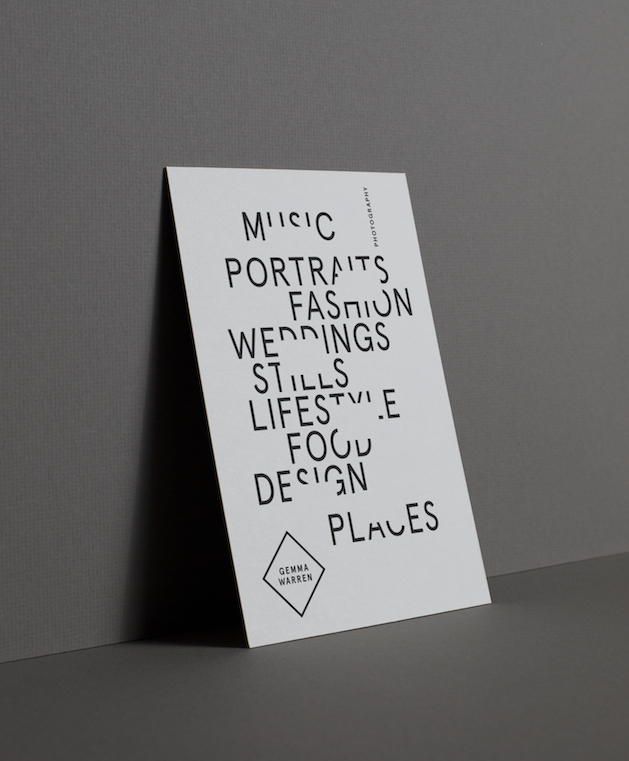 PHOTOGRAPHY
MUSIC
PORTRAITS
FASHION
WEDDINGS
STILLS
LIFESTYLE
FOOD
DESIGN
PLACES
GEMMA
WARREN